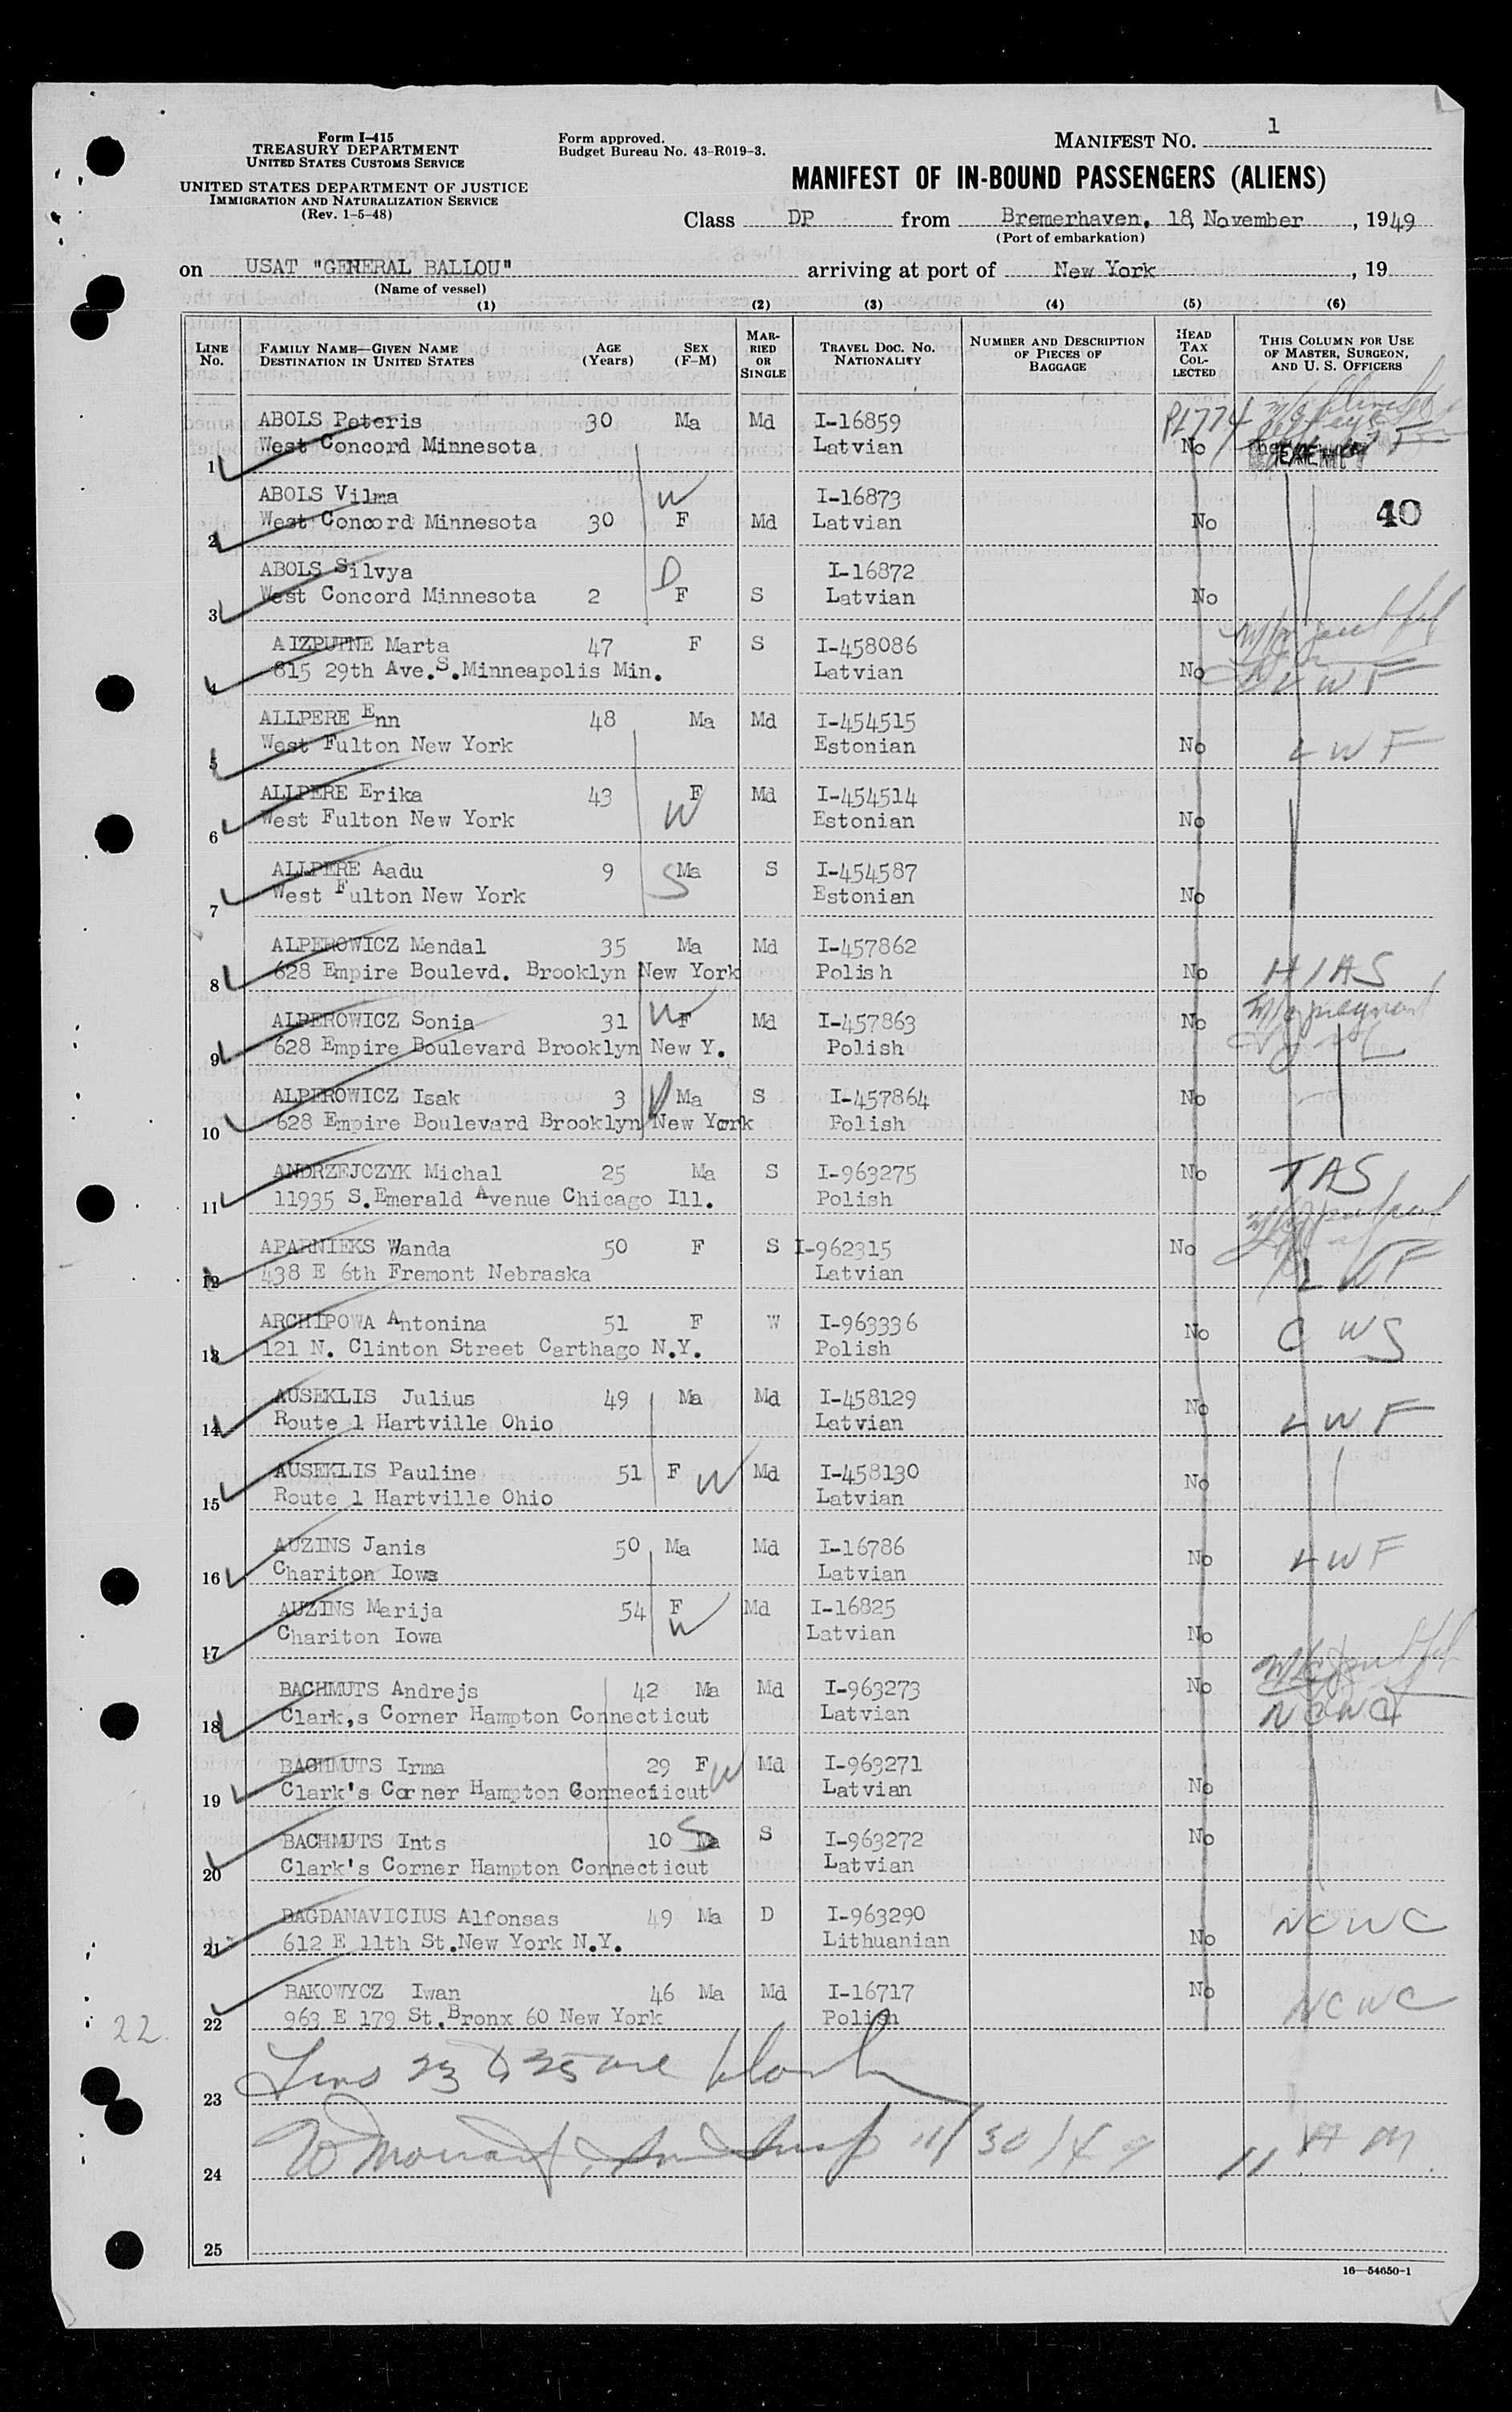 Form I-415
TREASURY DEPARTMENT
UNITED STATES CUSTOMS SERVICE
UNITED STATES DEPARTMENT OF JUSTICE
IMMIGRATION AND NATURALIZATION SERVICE
(Rev. 1-5-48)
Form approved.
Budget Bureau No. 43-R019-3.
MANIFEST NO. 1
MANIFEST OF IN-BOUND PASSENGERS (ALIENS)
Class DP from Bremerhaven, 18, November, 1949
(Port of embarkation)
on USAT "GENERAL BALLOU" arriving at port of New York, 19
(Name of vessel)
(1) (2) (3) (4) (5) (6)
LINE NO. FAMILY NAME—GIVEN NAME DESTINATION IN UNITED STATES AGE (Years) SEX (F-M) MARRIED OR SINGLE TRAVEL DOC. NO. NATIONALITY NUMBER AND DESCRIPTION OF PIECES OF BAGGAGE HEAD TAX COLLECTED THIS COLUMN FOR USE OF MASTER, SURGEON, AND U. S. OFFICERS
ABOLS Peteris 30 Ma Md I-16859 P1774
1 West Concord Minnesota Latvian No
ABOLS Vilma W I-16873
2 West Concord Minnesota 30 F Md Latvian No 40
ABOLS Silvya D I-16872
3 West Concord Minnesota 2 F S Latvian No
AIZPUPNE Marta 47 F S I-458086
4 815 29th Ave.S.Minneapolis Min. Latvian No LWF
ALLPERE Enn 48 Ma Md I-454515
5 West Fulton New York Estonian No LWF
ALLPERE Erika 43 F Md I-454514
6 West Fulton New York W Estonian No
ALLPERE Aadu 9 S Ma S I-454587
7 West Fulton New York Estonian No
ALPEROWICZ Mendal 35 Ma Md I-457862
8 628 Empire Boulevd. Brooklyn New York Polish No HIAS
ALPEROWICZ Sonia 31 W F Md I-457863 No pregnant
9 628 Empire Boulevard Brooklyn New Y. Polish
ALPEROWICZ Isak 3 D Ma S I-457864 No
10 628 Empire Boulevard Brooklyn New York Polish
ANDRZEJCZYK Michal 25 Ma S I-963275 No TAS
11 11935 S.Emerald Avenue Chicago Ill. Polish
APARNIEKS Wanda 50 F S I-962315 No
12 438 E 6th Fremont Nebraska Latvian LWF
ARCHIPOWA Antonina 51 F W I-963336 No CWS
13 121 N. Clinton Street Carthago N.Y. Polish
AUSEKLIS Julius 49 Ma Md I-458129 No LWF
14 Route 1 Hartville Ohio Latvian
AUSEKLIS Pauline 51 F W Md I-458130 No
15 Route 1 Hartville Ohio Latvian
AUZINS Janis 50 Ma Md I-16786 No LWF
16 Chariton Iowa Latvian
AUZINS Marija 54 F Md I-16825
17 Chariton Iowa W Latvian No
BACHMUTS Andrejs 42 Ma Md I-963273 No
18 Clark,s Corner Hampton Connecticut Latvian NCWC
BACHMUTS Irma 29 F W Md I-963271
19 Clark's Corner Hampton Connecticut Latvian No
BACHMUTS Ints 10 S Ma S I-963272 No
20 Clark's Corner Hampton Connecticut Latvian
BAGDANAVICIUS Alfonsas 49 Ma D I-963290 NCWC
21 612 E 11th St.New York N.Y. Lithuanian No
BAKOWYCZ Iwan 46 Ma Md I-16717 No NCWC
22 963 E 179 St.Bronx 60 New York Polish
22
23 Lines 23 to 25 are blank
24 11/30/49 11 AM
25
16—54650-1